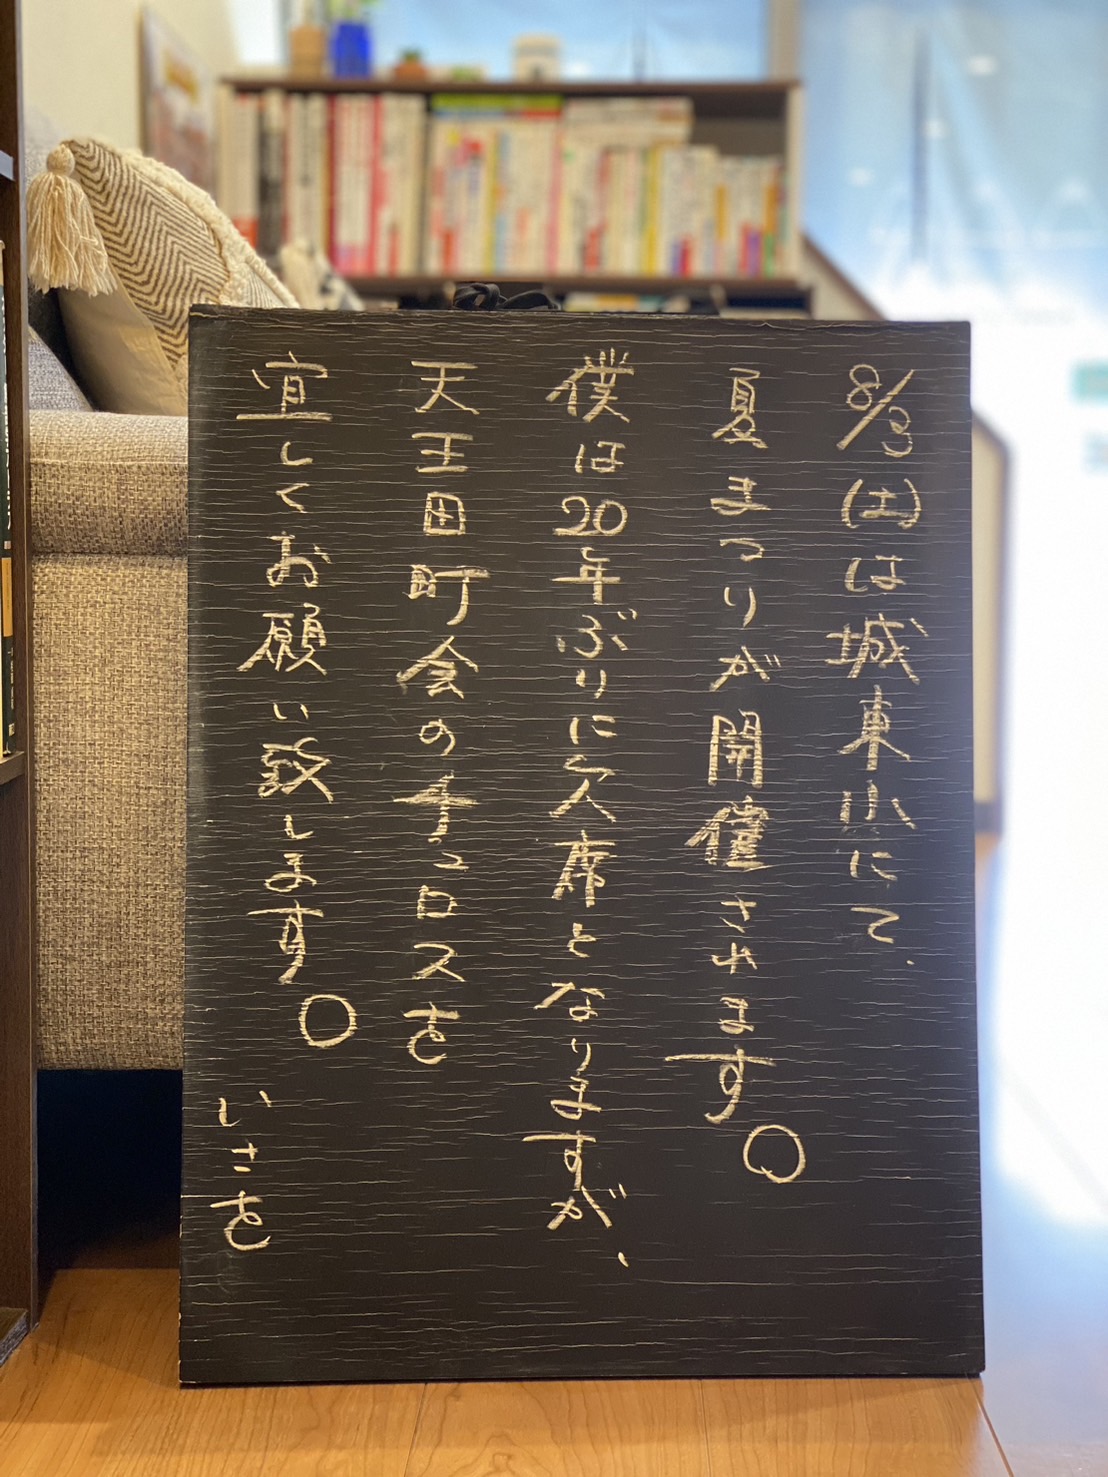 8/3(土)は城東小にて、
夏まつりが開催されます。
僕は20年ぶりに欠席となりますが、
天王田町会のチュロスを
宜しくお願い致します。
いさを